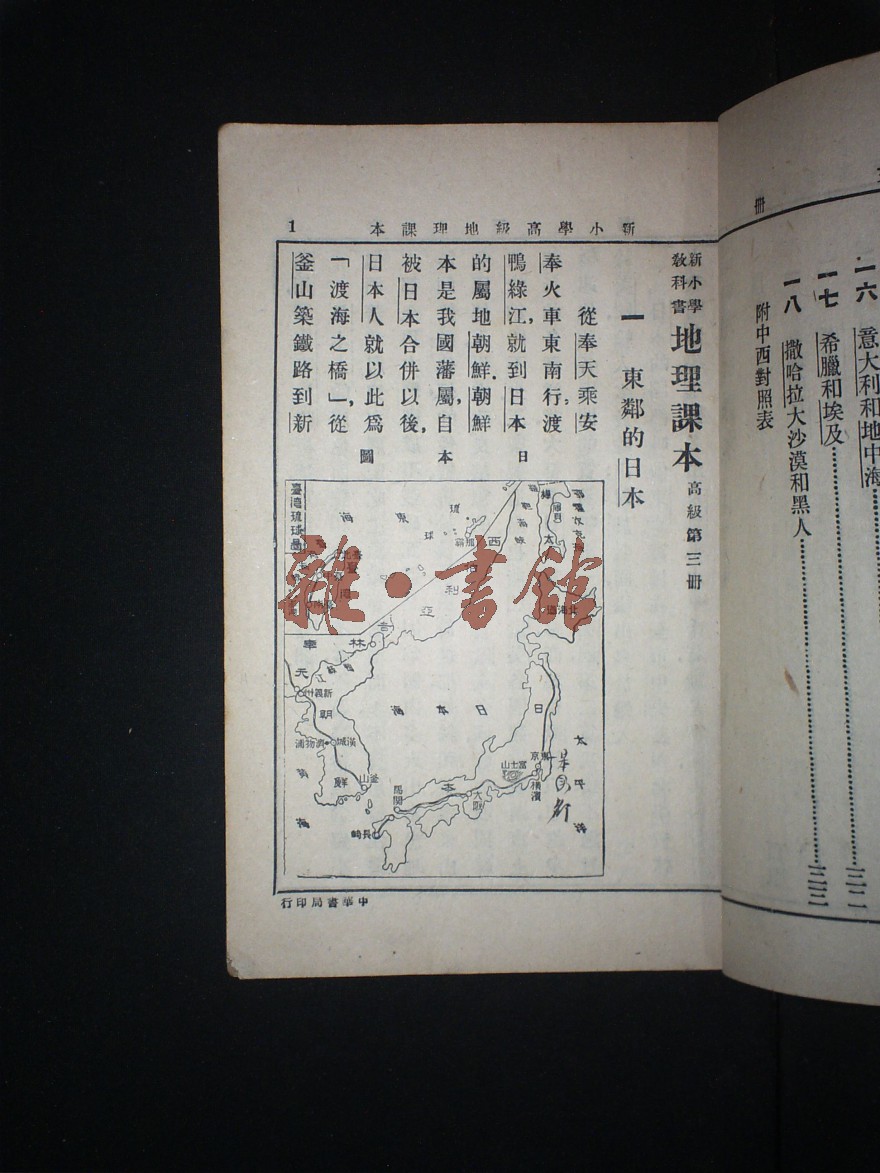 冊
一六 意大利和地中海
一七 希臘和埃及
一八 撒哈拉大沙漠和黑人
附中西對照表
新小學高級地理課本
1
新小學教科書 地理課本 高級第三冊
一 東鄰的日本
從奉天乘安
奉火車東南行；渡
鴨綠江，就到日本
的屬地朝鮮。朝鮮
本是我國藩屬，自
被日本合併以後，
日本人就以此為
「渡海之橋」，從
釜山築鐵路到新
日本圖
臺灣琉球圖
東海
琉球
西伯利亞
吉林
北海道
太平洋
日本海
日本
新義州
朝鮮
漢城
濟物浦
釜山
黃海
馬關
長崎
大阪
富士山
東京
橫濱
中華書局印行
雜·書館